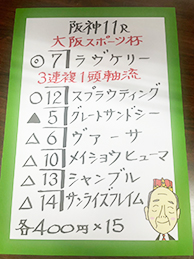 阪神11R
大阪スポーツ杯
◎7 ラヴケリー
3連複1頭軸流
○12 スプラウティング
▲5 グレートサンドシー
△6 ヴァーサ
△10 メイショウヒューマ
△13 シャンブル
△14 サンライズフレイム
各400円×15